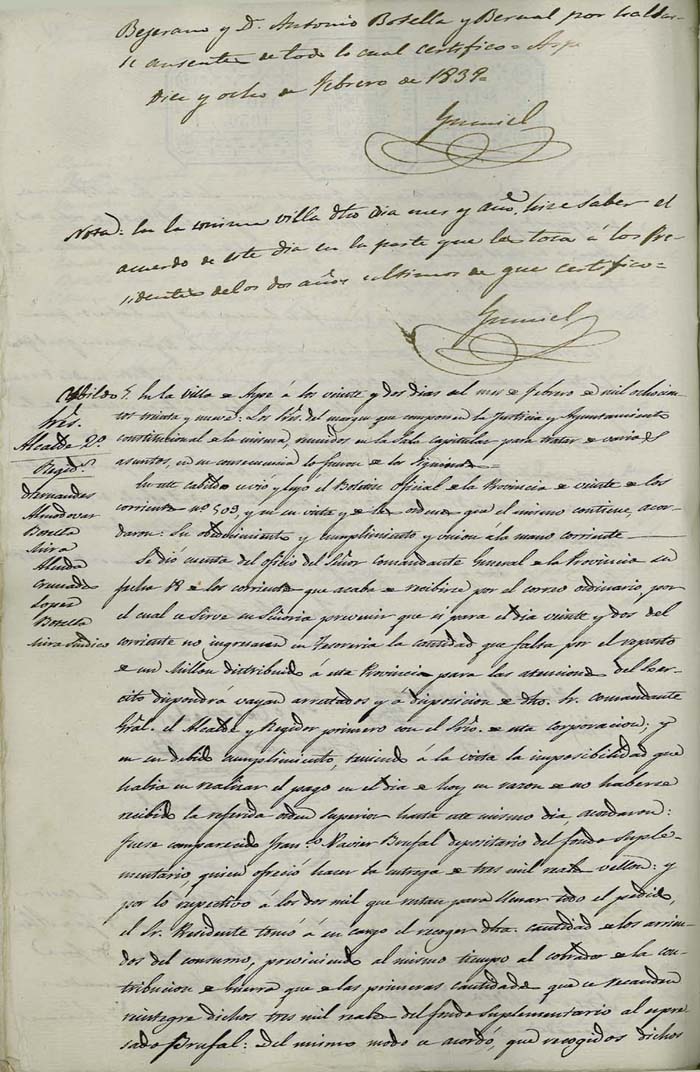 Bejerano y D. Antonio Botella y Bernal por hallar-
se ausentes de todo lo cual certifico = Aspe
Diez y ocho de Febrero de 1839=
Gumiel
Nota: En la misma villa dho dia mes y año, hice saber el
acuerdo de este dia en la parte que les toca á los Pre-
sidentes de los dos años ultimos de que certifico=
Gumiel
Cabildo
Sres.
Alcalde 2º
Regid.s
Hernandes
Almodovar
Botella
Mira
Alcada
Cremades
Lopez
Botella
Mira Sindico
En la villa de Aspe á los veinte y dos dias del mes de Febrero de mil ochocien-
tos treinta y nueve: Los Sres. del margen que componen la Justicia y Ayuntamiento
constitucional de la misma, reunidos en la Sala capitular para tratar de varios
asuntos, en su consecuencia lo fueron de los siguientes=
En este cabildo se vio y leyó el Boletin oficial de la Provincia de veinte de los
corrientes nº 509, y en su vista y de las ordenes que el mismo contiene, acor-
daron: Su obedecimiento y cumplimiento y union á la mano corriente
Se dió cuenta del oficio del Señor Comandante General de la Provincia su
fecha 18 de los corrientes que acaba de recibirse por el correo ordinario, por
el cual se sirve su Señoria prevenir que si para el dia veinte y dos del
corriente no ingresaren en Tesoreria la cantidad que falta por el reparto
de un Millon distribuido á esta Provincia para las atenciones del Exer-
cito dispondrá vayan arrestados y á disposicion de dho. Sr. Comandante
Gral. el Alcalde y Regidor primero con el Srio. de esta corporacion; y
en su debido cumplimiento, teniendo á la vista la imposibilidad que
habia en realizar el pago en el dia de hoy en razon de no haberse
recibido la referida orden superior hasta este mismo dia, acordaron:
fuese comparecido Fran.co Xavier Brufal depositario del fondo suple-
mentario, quien ofreció hacer la entrega de tres mil reales vellon: y
por lo respectivo á los dos mil que restan para llenar todo el pedido,
el Sr. Presidente tomó á su cargo el recoger dha. cantidad de los arrien-
dos del consumo, previniendo al mismo tiempo al cobrador de la con-
tribucion de Guerra que de las primeras cantidades que se recauden
reintegre dichos tres mil reales del fondo suplementario al espre-
sado Brufal: Del mismo modo se acordó, que recogidos dichos